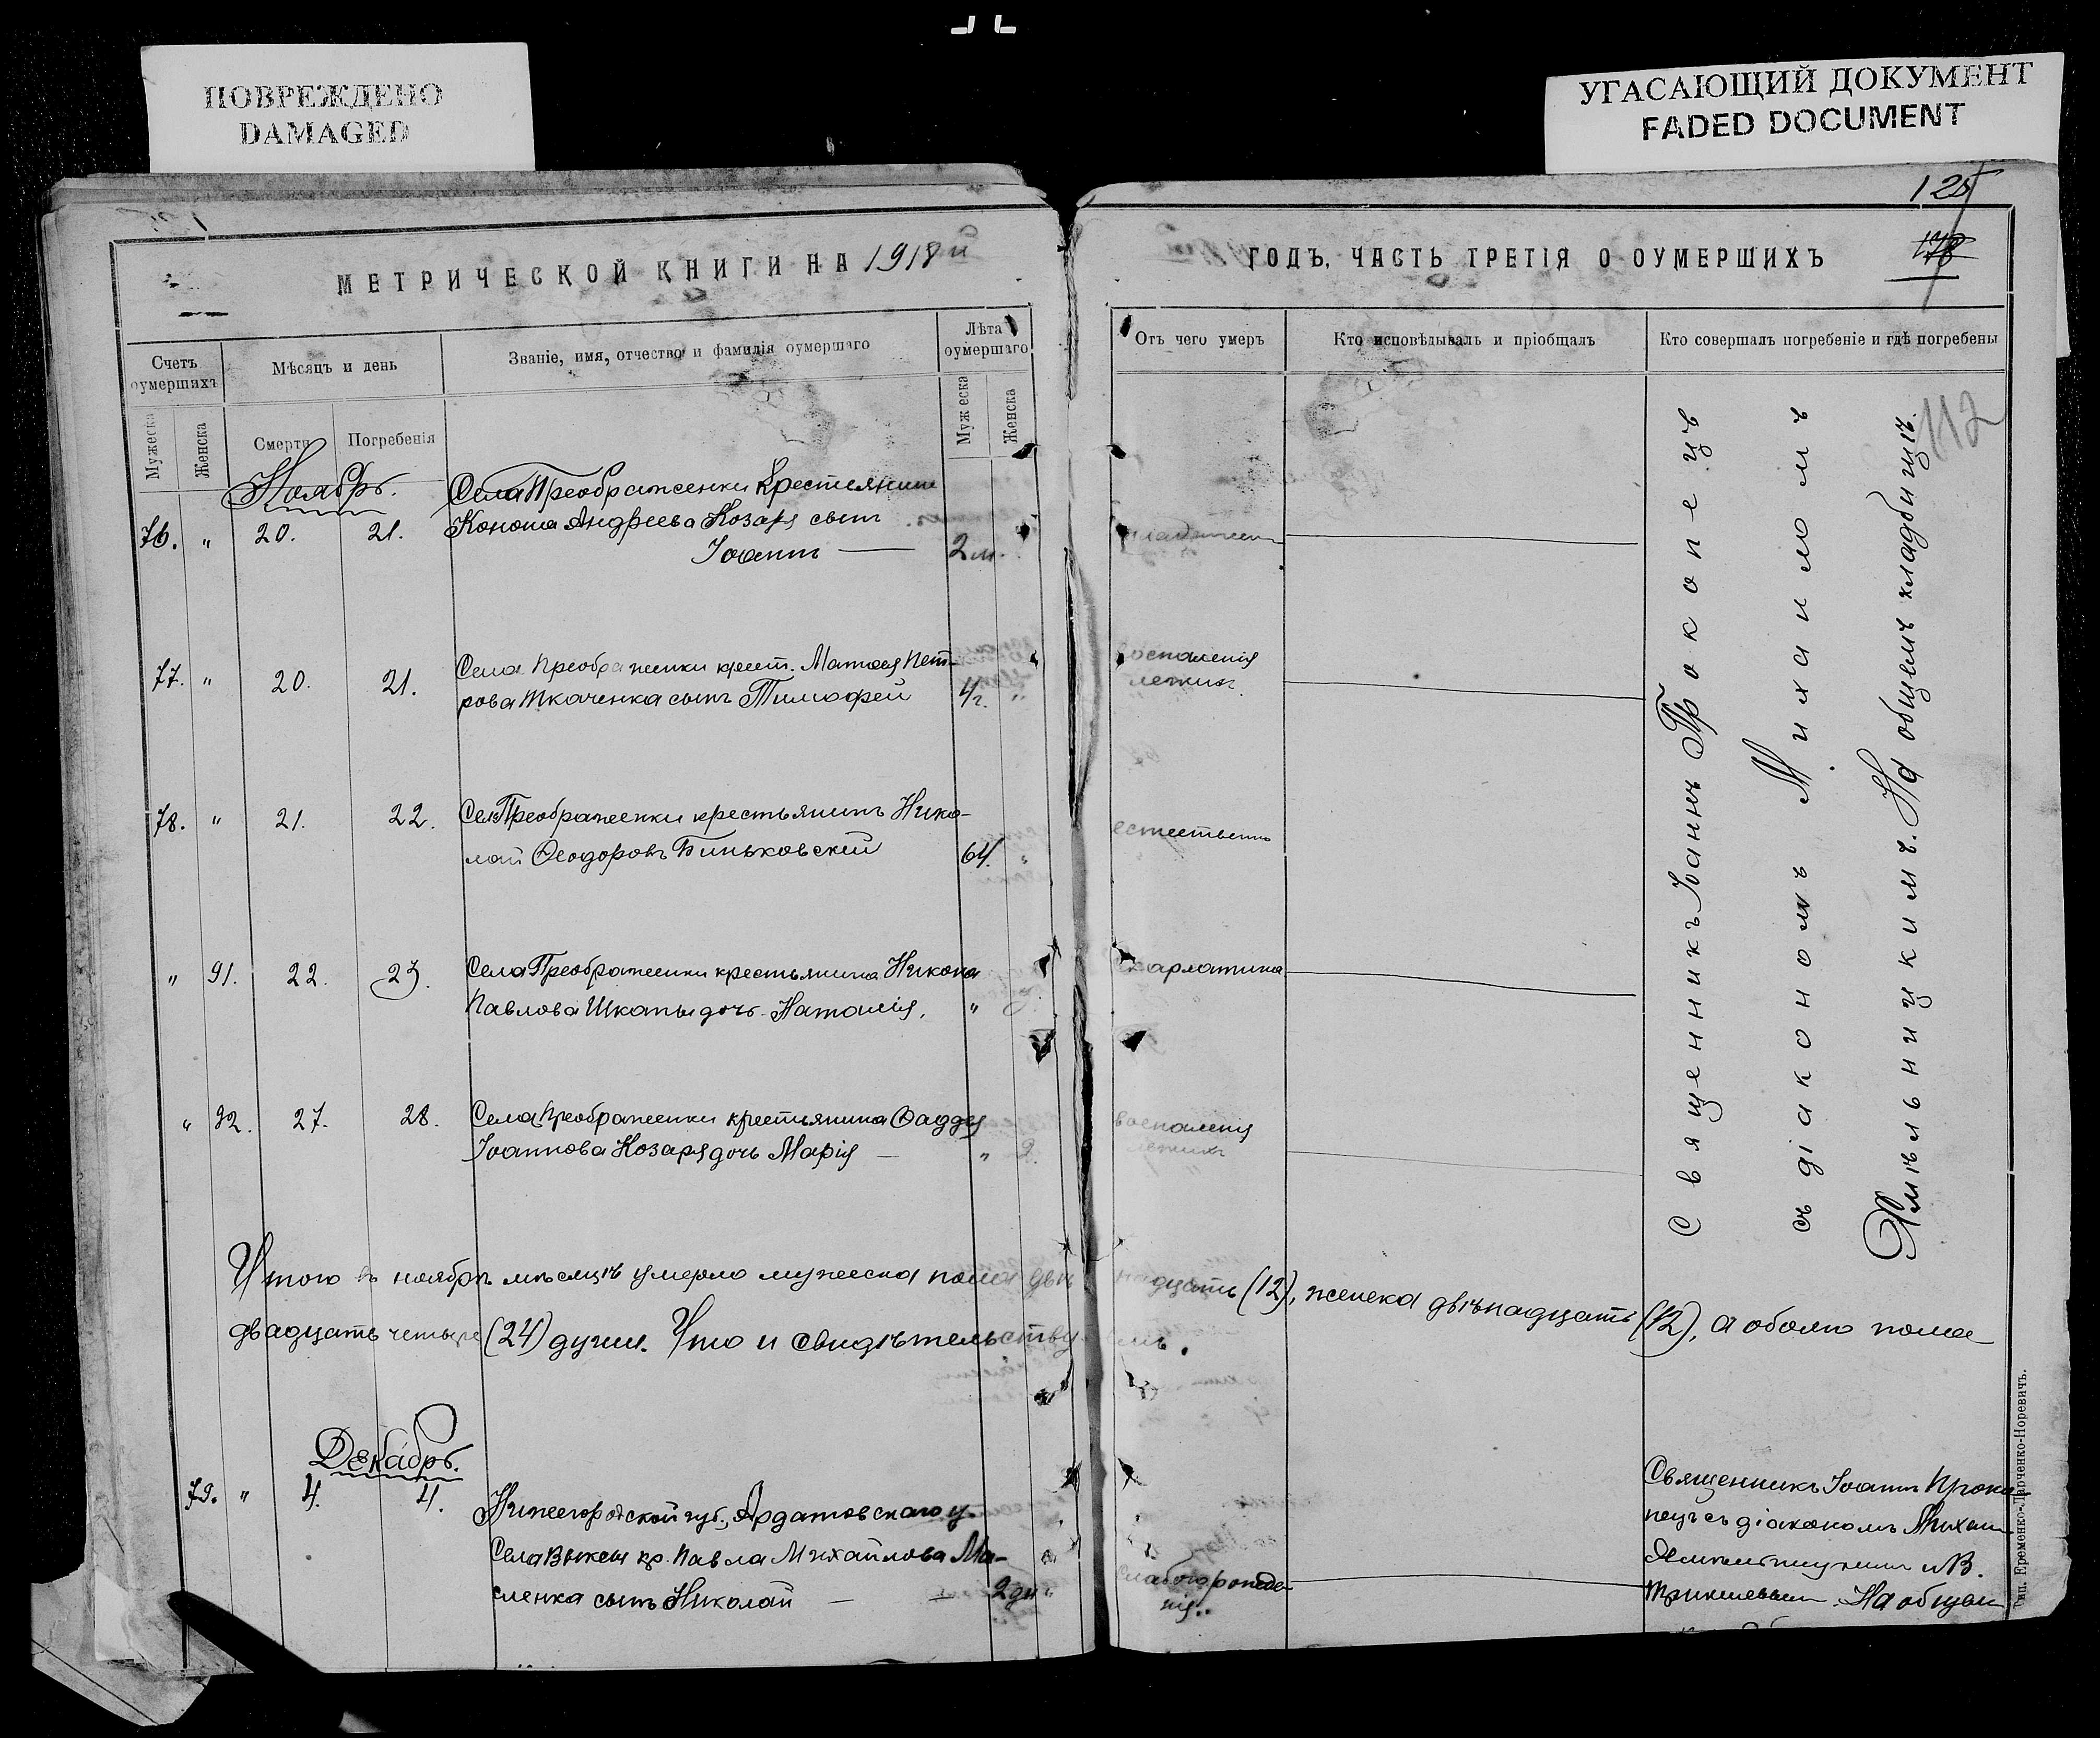 ПОВРЕЖДЕНО
DAMAGED
УГАСАЮЩИЙ ДОКУМЕНТ
FADED DOCUMENT
125
178
112
МЕТРИЧЕСКОЙ КНИГИ НА 1918 й
ГОДЪ, ЧАСТЬ ТРЕТІЯ О ОУМЕРШИХЪ
Счетъ оумершихъ
Мѣсяцъ и день
Званіе, имя, отчество и фамилія оумершаго
Лѣта оумершаго
Отъ чего умеръ
Кто исповѣдывалъ и пріобщалъ
Кто совершалъ погребеніе и гдѣ погребены
Мужеска
Женска
Смерти
Погребенія
Мужеска
Женска
Ноябрь.
Села Преображенки Крестьянина
76. " 20. 21. Конона Андреева Козаря сынъ
Іоаннъ — 2 м.
Села Преображенки крест. Матѳея Пет-
77. " 20. 21. рова Ткаченка сынъ Тимофей 4 г. "
воспаленія
легкихъ.
78. " 21. 22. Сел Преображенки крестьянинъ Нико-
лай Ѳеодоровъ Биньковскій 64. "
естественно
" 91. 22. 23. Села Преображенки крестьянина Никона
Павлова Шкапы дочь Наталія. "
скарлатина
" 92. 27. 28. Села Преображенки крестьянина Ѳаддея
Іоаннова Козаря дочь Марія — "
воспаленія
легкихъ
Священникъ Іоаннъ Прокопецъ
съ діакономъ Михаиломъ
Хмѣльницкимъ. На общемъ кладбищѣ.
Итого въ ноябрѣ мѣсяцѣ умерло мужеска пола двѣнадцать (12), женска двѣнадцать (12), а обоего пола
двадцать четыре (24) души. Что и свидѣтельствуемъ.
Декабрь.
79. " 4. 4. Нижегородской губ., Ардатовскаго у.
Села Выксы кр. Павла Михайлова Ма-
сленка сынъ Николай — 2 дн "
слабого рожде-
нія..
Священникъ Іоаннъ Проко-
пецъ съ діакономъ
На общем
Тип. Еременко-Лапченко-Норевичъ.